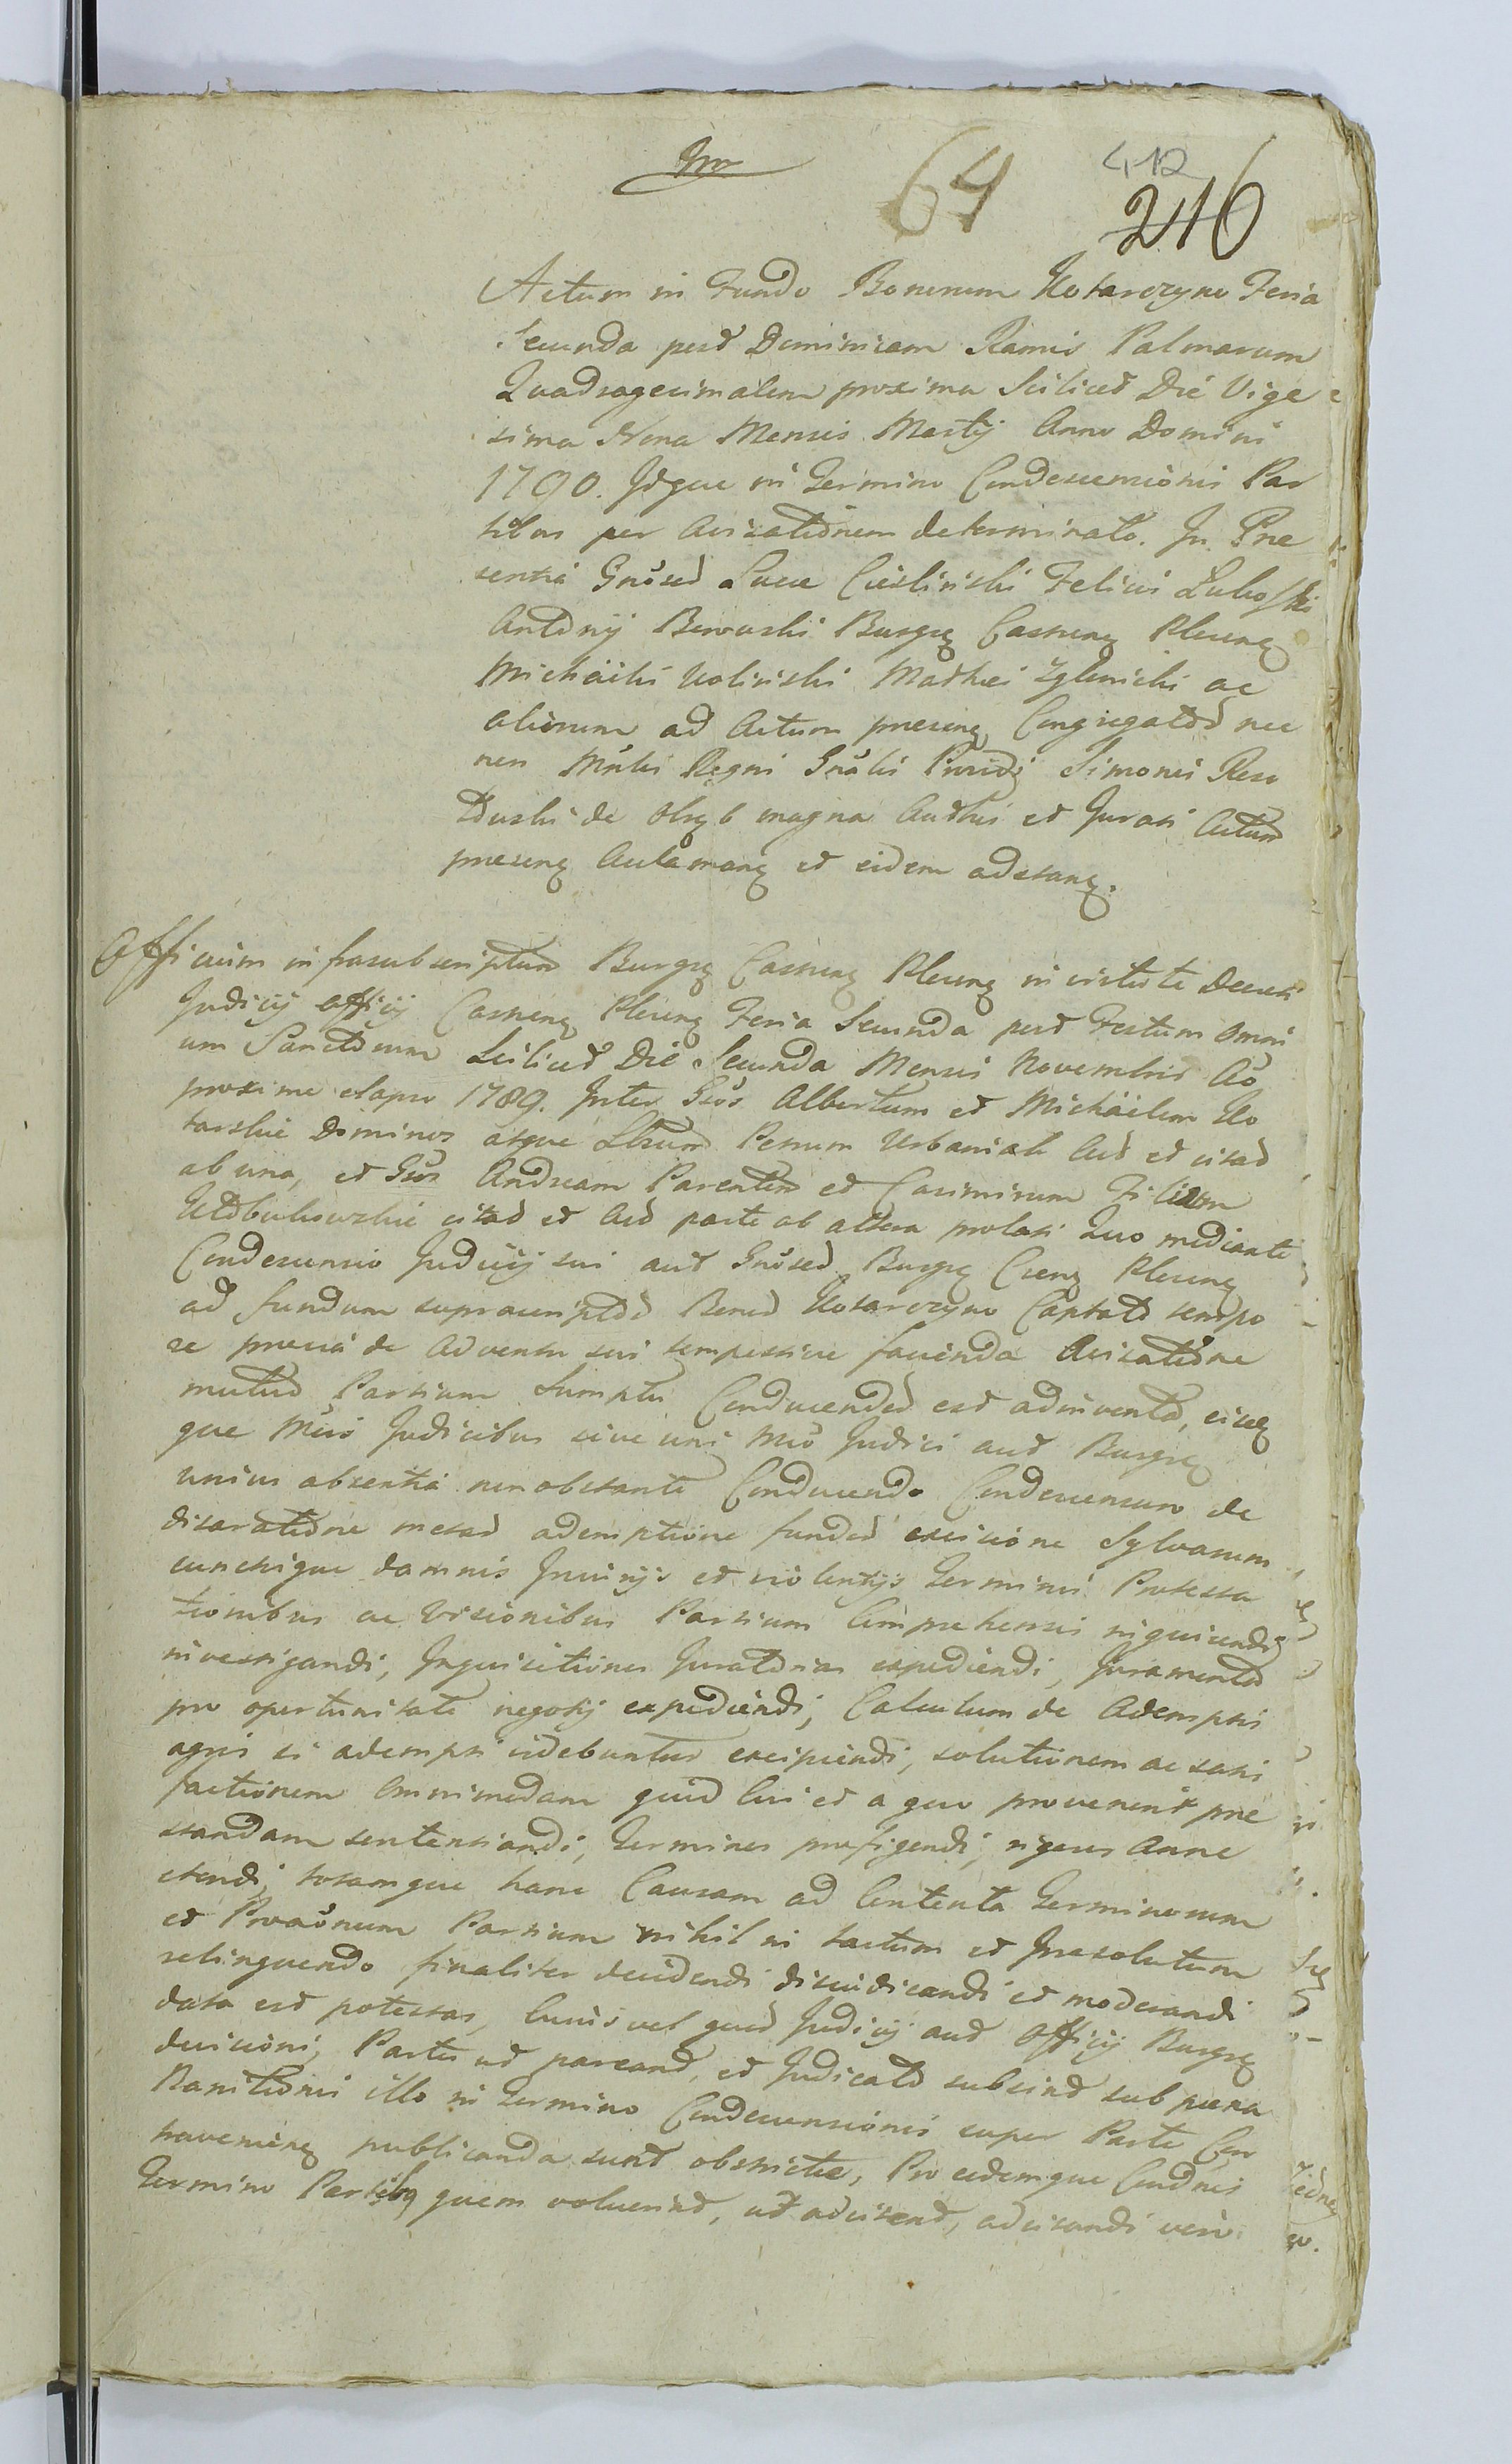 64 412
216
Actum in Fundo Bonorum Kotarczyno Feria
Secunda post Dominicam Ramis Palmarum
Quadragesimalem proxima Scilicet Die Vige
sima Nona Mensis Martij Anno Domini
1790. Idque in Termino Condescensionis Par
tibus per Avisationem determinato. In Pre
sentia Gnosed Luce Cieslinski Felicis
Antonij Burgr Castren Plocen
Michaelis Kolinski Mathei Zglenicki ac
aliorum ad Actum presen Congregatod nec
non Mnlis Regni Gnalis Providi Simonis
de magna Authis et Jurati Actum
presen Aclaman et eidem adstan.
Officium infrasubscriptum Burgr Castren Plocen in virtute Decreti
Judicij Officij Castren Plocen Feria Secunda post Festum Omni
um Sanctorum Scilicet Die Secunda Mensis Novembris Ao
proxime elapso 1789. Inter Gsos Albertum et Michaelem Ko
tarskie Dominos atque Petrum Urbaniak Act et citat
ab una, et Gsos Andream Parentem et Casimirum Filium
citat et Act parte ab altera prolati Quo mediante
Condescensio Judicij sui aut Gnosed Burgr Cren Plocen
ad fundum suprascriptod Bonod Kotarczyno Captato tempo
re previa de Adventu sui tempestive facienda Avisatione
mutuo Partium Sumptu Conducended est adinventa, eisq
que Mcis Judicibus sive uni Mco Judici aut Burgr
unius absentia non obstante Conducendo Condescensuro de
disaratione metad ademptione fundod excisione Sylvarum
cunctisque damnis Injurijs et violentijs Terminis Protesta
tionibus ac Visionibus Partium Comprehensis inquirendi
investigandi, Inquisitiones Juratorias expediendi, Juramenta
pro oportunitate negotij expediendi, Calculum de Ademptis
agris si adempti videbuntur excipiendi, solutionem ac satis
factionem Omnimodam quid Cui et a quo provenerit pre
standam sententiandi, Terminos prefigendi, rigores Anne
ctendi, totamque hanc Causam ad Contenta Terminorum
et Provaonum Partium nihil in tactum et Iresolutum
relinquendo finaliter decidendi dijudicandi et moderandi
data est potestas, Cujusvel quod Judicij aut Officij Burgr
decisioni, Partes ut pareant, et Judicato subsint sub poena
Banitionis illo in Termino Condescensionis super Parte Con
travenien publicanda sunt obstricte, Pro eodemque Condnis
Termino Partibq quem voluerint, ut advisent, advisandi vero